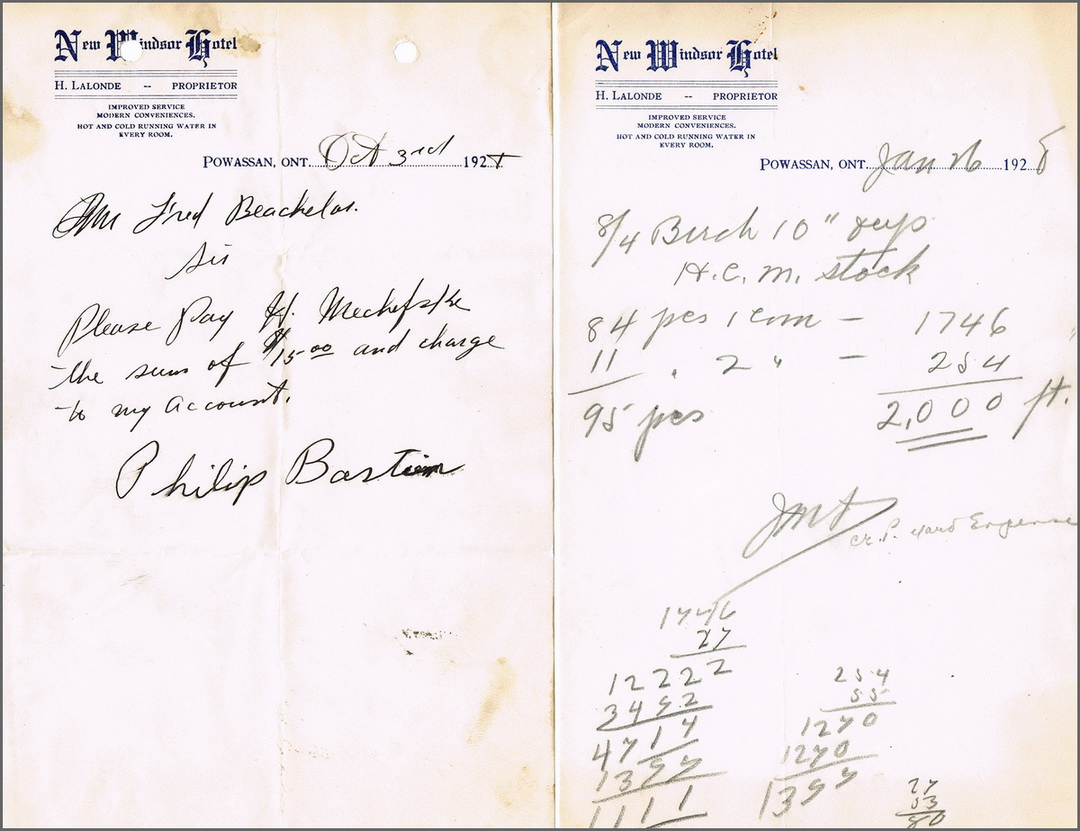 New Windsor Hotel
H. LALONDE -- PROPRIETOR
IMPROVED SERVICE
MODERN CONVENIENCES.
HOT AND COLD RUNNING WATER IN
EVERY ROOM.
POWASSAN, ONT. Oct 3rd 192
Mr Fred Beachelor.
Sir
Please Pay H. Mechefske
the sum of $15.00 and charge
to my account.
Philip Bastien
New Windsor Hotel
H. LALONDE -- PROPRIETOR
IMPROVED SERVICE
MODERN CONVENIENCES.
HOT AND COLD RUNNING WATER IN
EVERY ROOM.
POWASSAN, ONT. Jan 26 1928
8/4 Birch 10"
H.C.M. stock
84 pcs 1 com – 1746
11 " 2 " – 254
95 pcs 2,000 ft.
1746
27
12222
3492
4714
1397
1111
254
55
1270
1270
1397
27
53
80